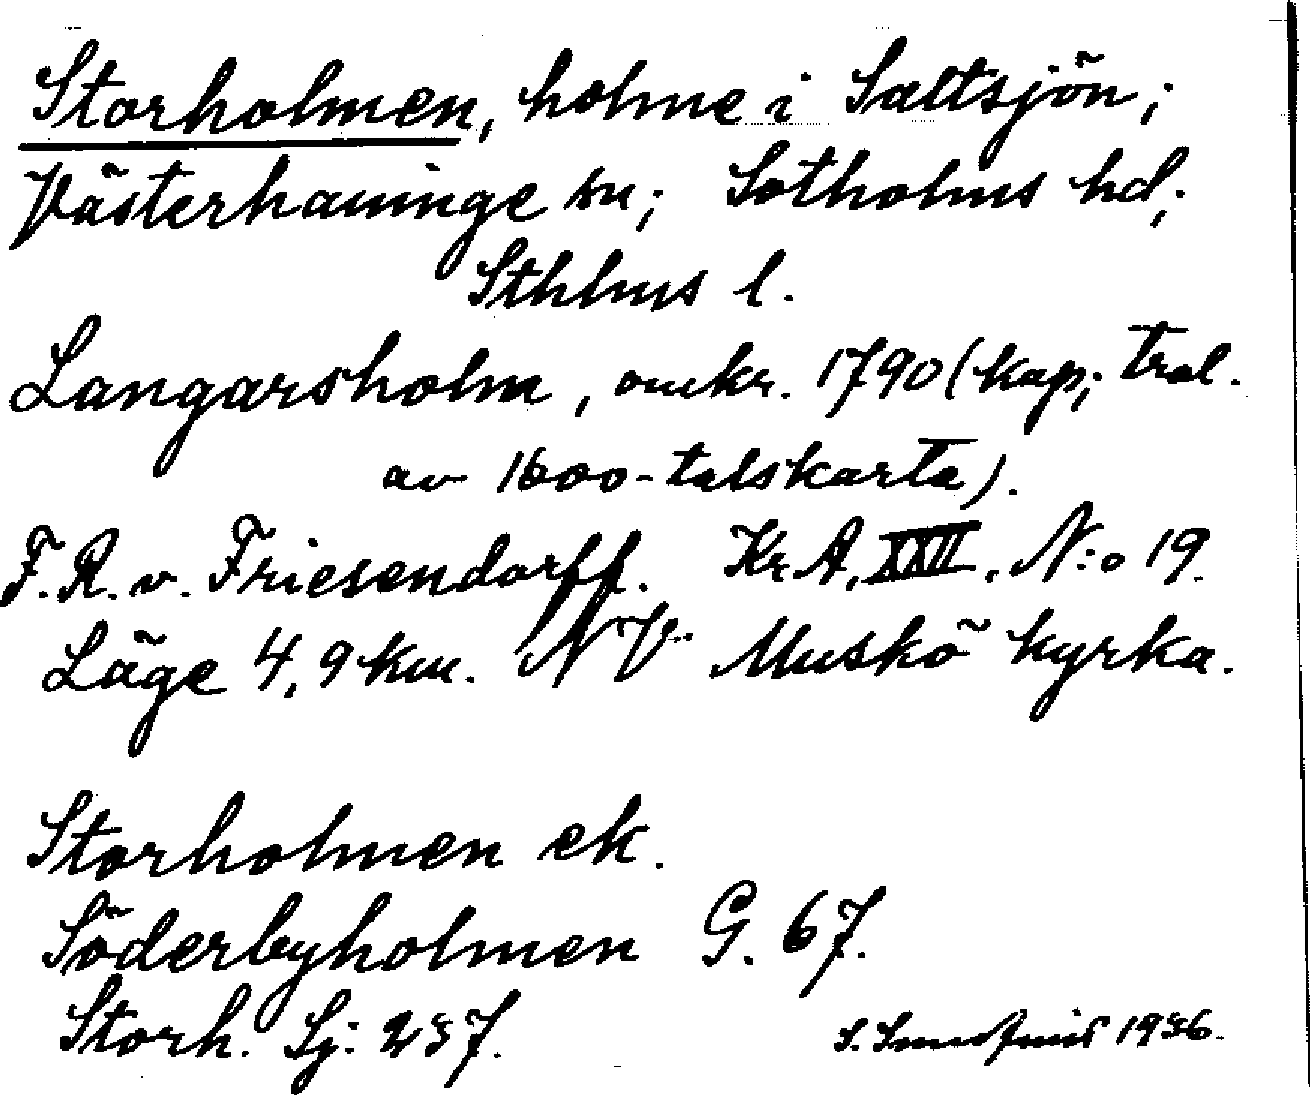 Storholmen, holme i Saltsjön;
Västerhaninge sn; Sotholms hd;
Sthlms l.
Langarsholm, omkr. 1790 (kap; trol.
av 1600-talskarta).
F. R. v. Friesendorff. Kr. A, XXII. N:o 19.
Läge 4,9 km. NV Muskö kyrka.
Storholmen ek.
Söderbyholmen G. 67.
Storh. Sj: 237.
S. 1936.